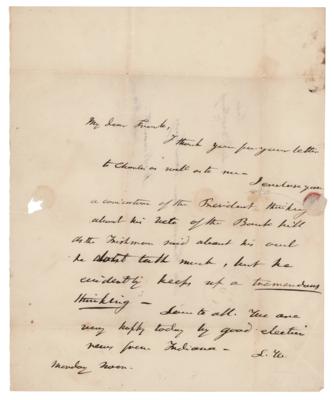 My dear Frank,
I thank you for your letter
to Charles as well as to me —
I enclose you
a caricature of the President thinking
about his Veto of the Bank bill
As the Irishman said about his owl
he don't talk much, but he
evidently keeps up a tremendous
thinking —
Love to all. We are
very happy today by good election
news from Indiana —
Monday Noon.